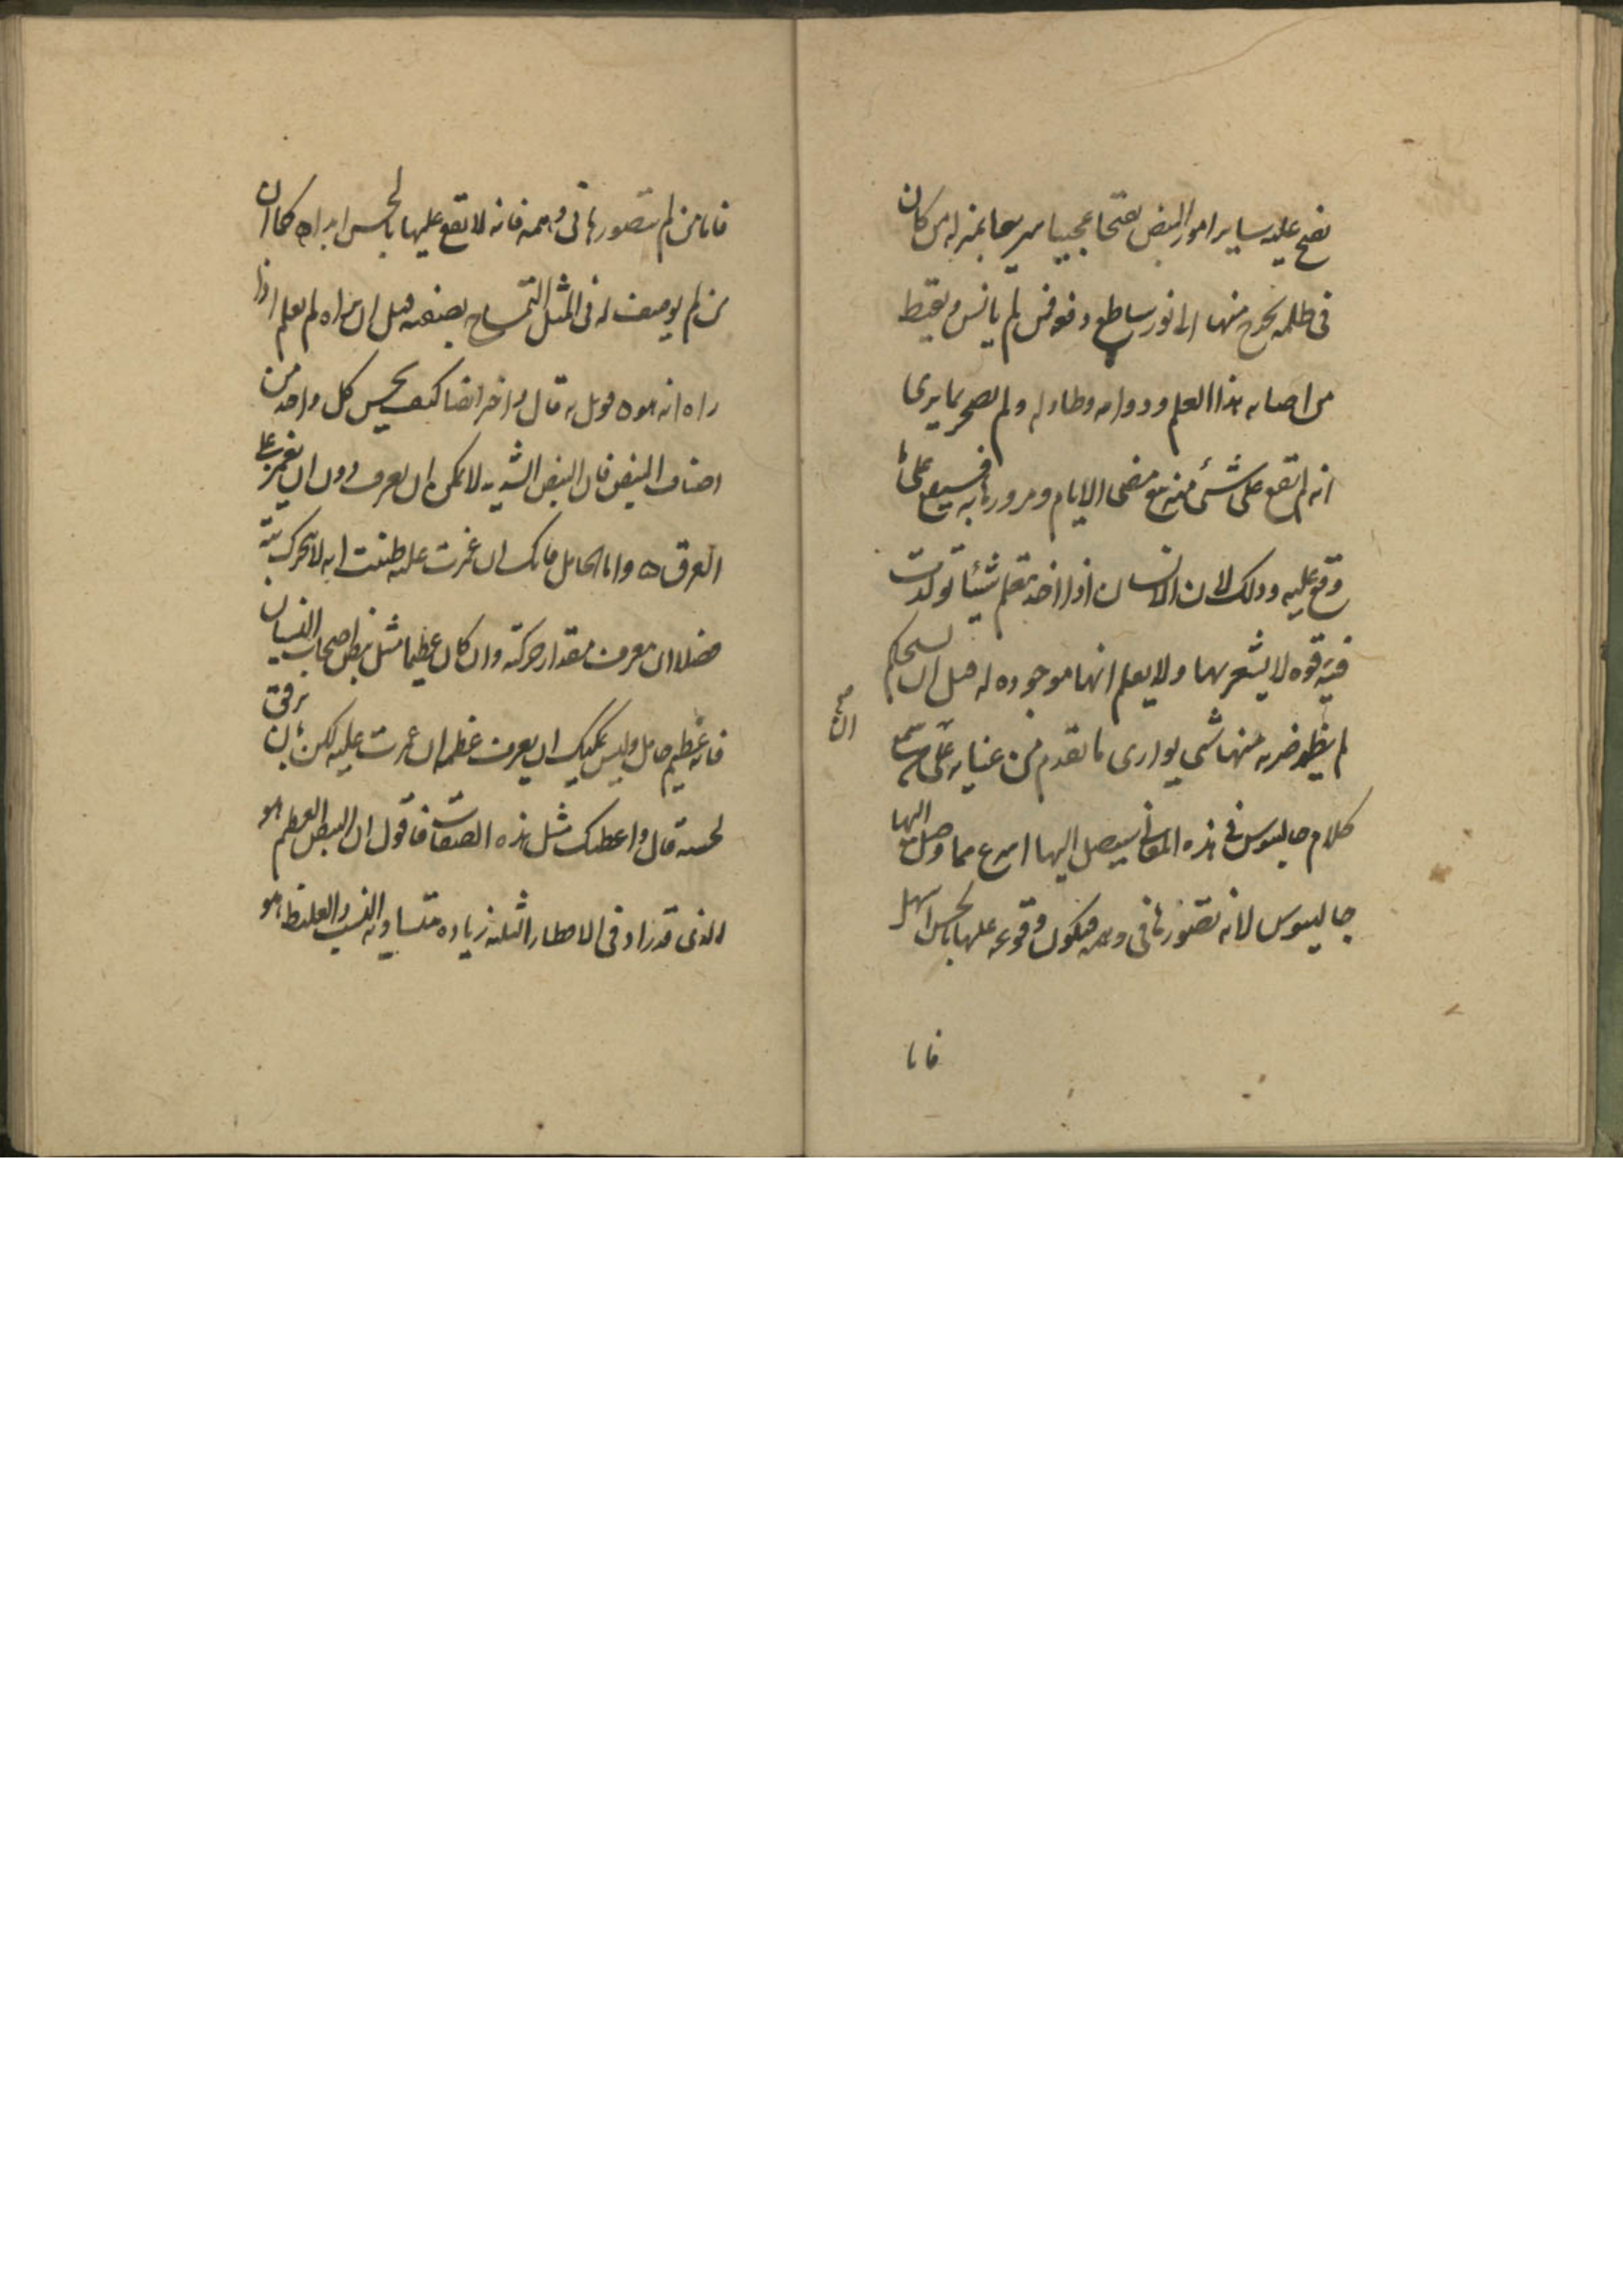 يفتح عليه ساير امور النبض تفتحا عجيبا سريعا بمنزله من كان
فى ظلمه يخرج منها الى نور ساطع وقوفس لم يانس ويقنط
من اصابه هذا العلم ودوامه وطاوله ولم يضجر بما يرى
انه لم يقع على شئ منه مع مضى الايام ومرورها به فسيقع على ما
وقع عليه وذلك لان الانسان اذا اخذ يتعلم شيئا تولدت
فيه قوه لا يشعر بها ولا يعلم انها موجوده له قبل ان يستحكم
لم يظهر ضربه منها شى يوارى ما تقدم من عنايه على من سمع
كلام جالينوس فى هذه المعانى سيصل اليها اسرع مما وصل اليها
جالينوس لانه تصورها فى وهمه فيكون وقوعه عليها بالحس اسهل
فاما
فاما من لم يتصورها فى وهمه فانه لا يقع عليها بالحس ابدا ه كما ان
من لم يوصف له فى المثل التمساح بصفته قبل ان يراه لم يعلم اذا
راه انه هو ه قوبل به قال واخبر ايضا كيف يحس كل واحد من
اصناف النبض فان النبض الشديد لا يمكن ان يعرف دون ان يغمز على
العرق ه واما الخامل فانك ان غمزت عليه ظننت انه لا يتحرك بته
فضلا ان تعرف مقدار حركته وان كان عظيما مثل نبض اصحاب النسيان
فانه عظيم خامل وليس يمكنك ان يعرف عظمه ان غمزت عليه لكن بان ترفق
لحسه قال واعطيك مثل هذه الصفات فاقول ان النبض العظيم هو
الذى قد زاد فى الاقطار الثلثه زياده متساويه النسب والغليظ هو